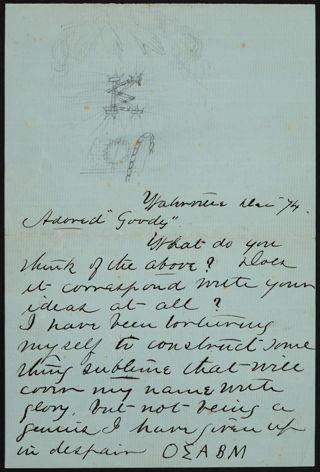 Σ
Dec 74.
Adored "Goody"
What do you
think of the above? Does
it correspond with your
ideas at all?
I have been torturing
myself to construct some
thing sublime that will
cover my name with
glory, but not being a
genius I have given up
in despair ΟΣΑΒΜ